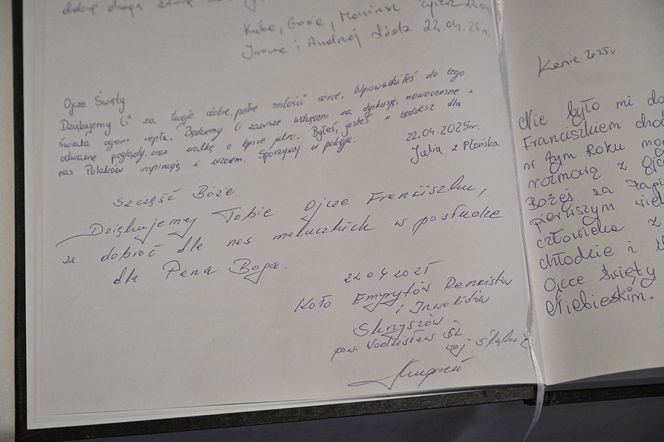 dobrą drogą
Kuba, Gosia,
Irena i Andrzej Łódź 22.04.25r.
Ojcze Święty
Dziękujemy Ci za Twoje dobre, pełne miłości serce. Wprowadziłeś do tego
świata ogrom ciepła. Będziemy Ci zawsze wdzięczni za dyskusję, nowoczesne i
odważne poglądy, oraz walkę o lepsze jutro. Byłeś, jesteś i będziesz dla
nas Polaków inspiracją i wzorem. Spoczywaj w pokoju.
22.04.2025r.
Julia z Płońska
Szczęść Boże
Dziękujemy Tobie Ojcze Franciszku,
za dobroć dla nas maluczkich w posłudze
dla Pana Boga.
22 04 2025
Koło Emerytów Rencistów
i Inwalidów
Skrzyszów
pow. Wodzisław Śl.
woj. Śląskie
Kenie 2025r
Nie było mi da
Franciszkiem
w tym roku
rozmową z
Bożej za
pierwszym
człowieka z
chłodzie i
Ojcze Święty
Niebieskim.